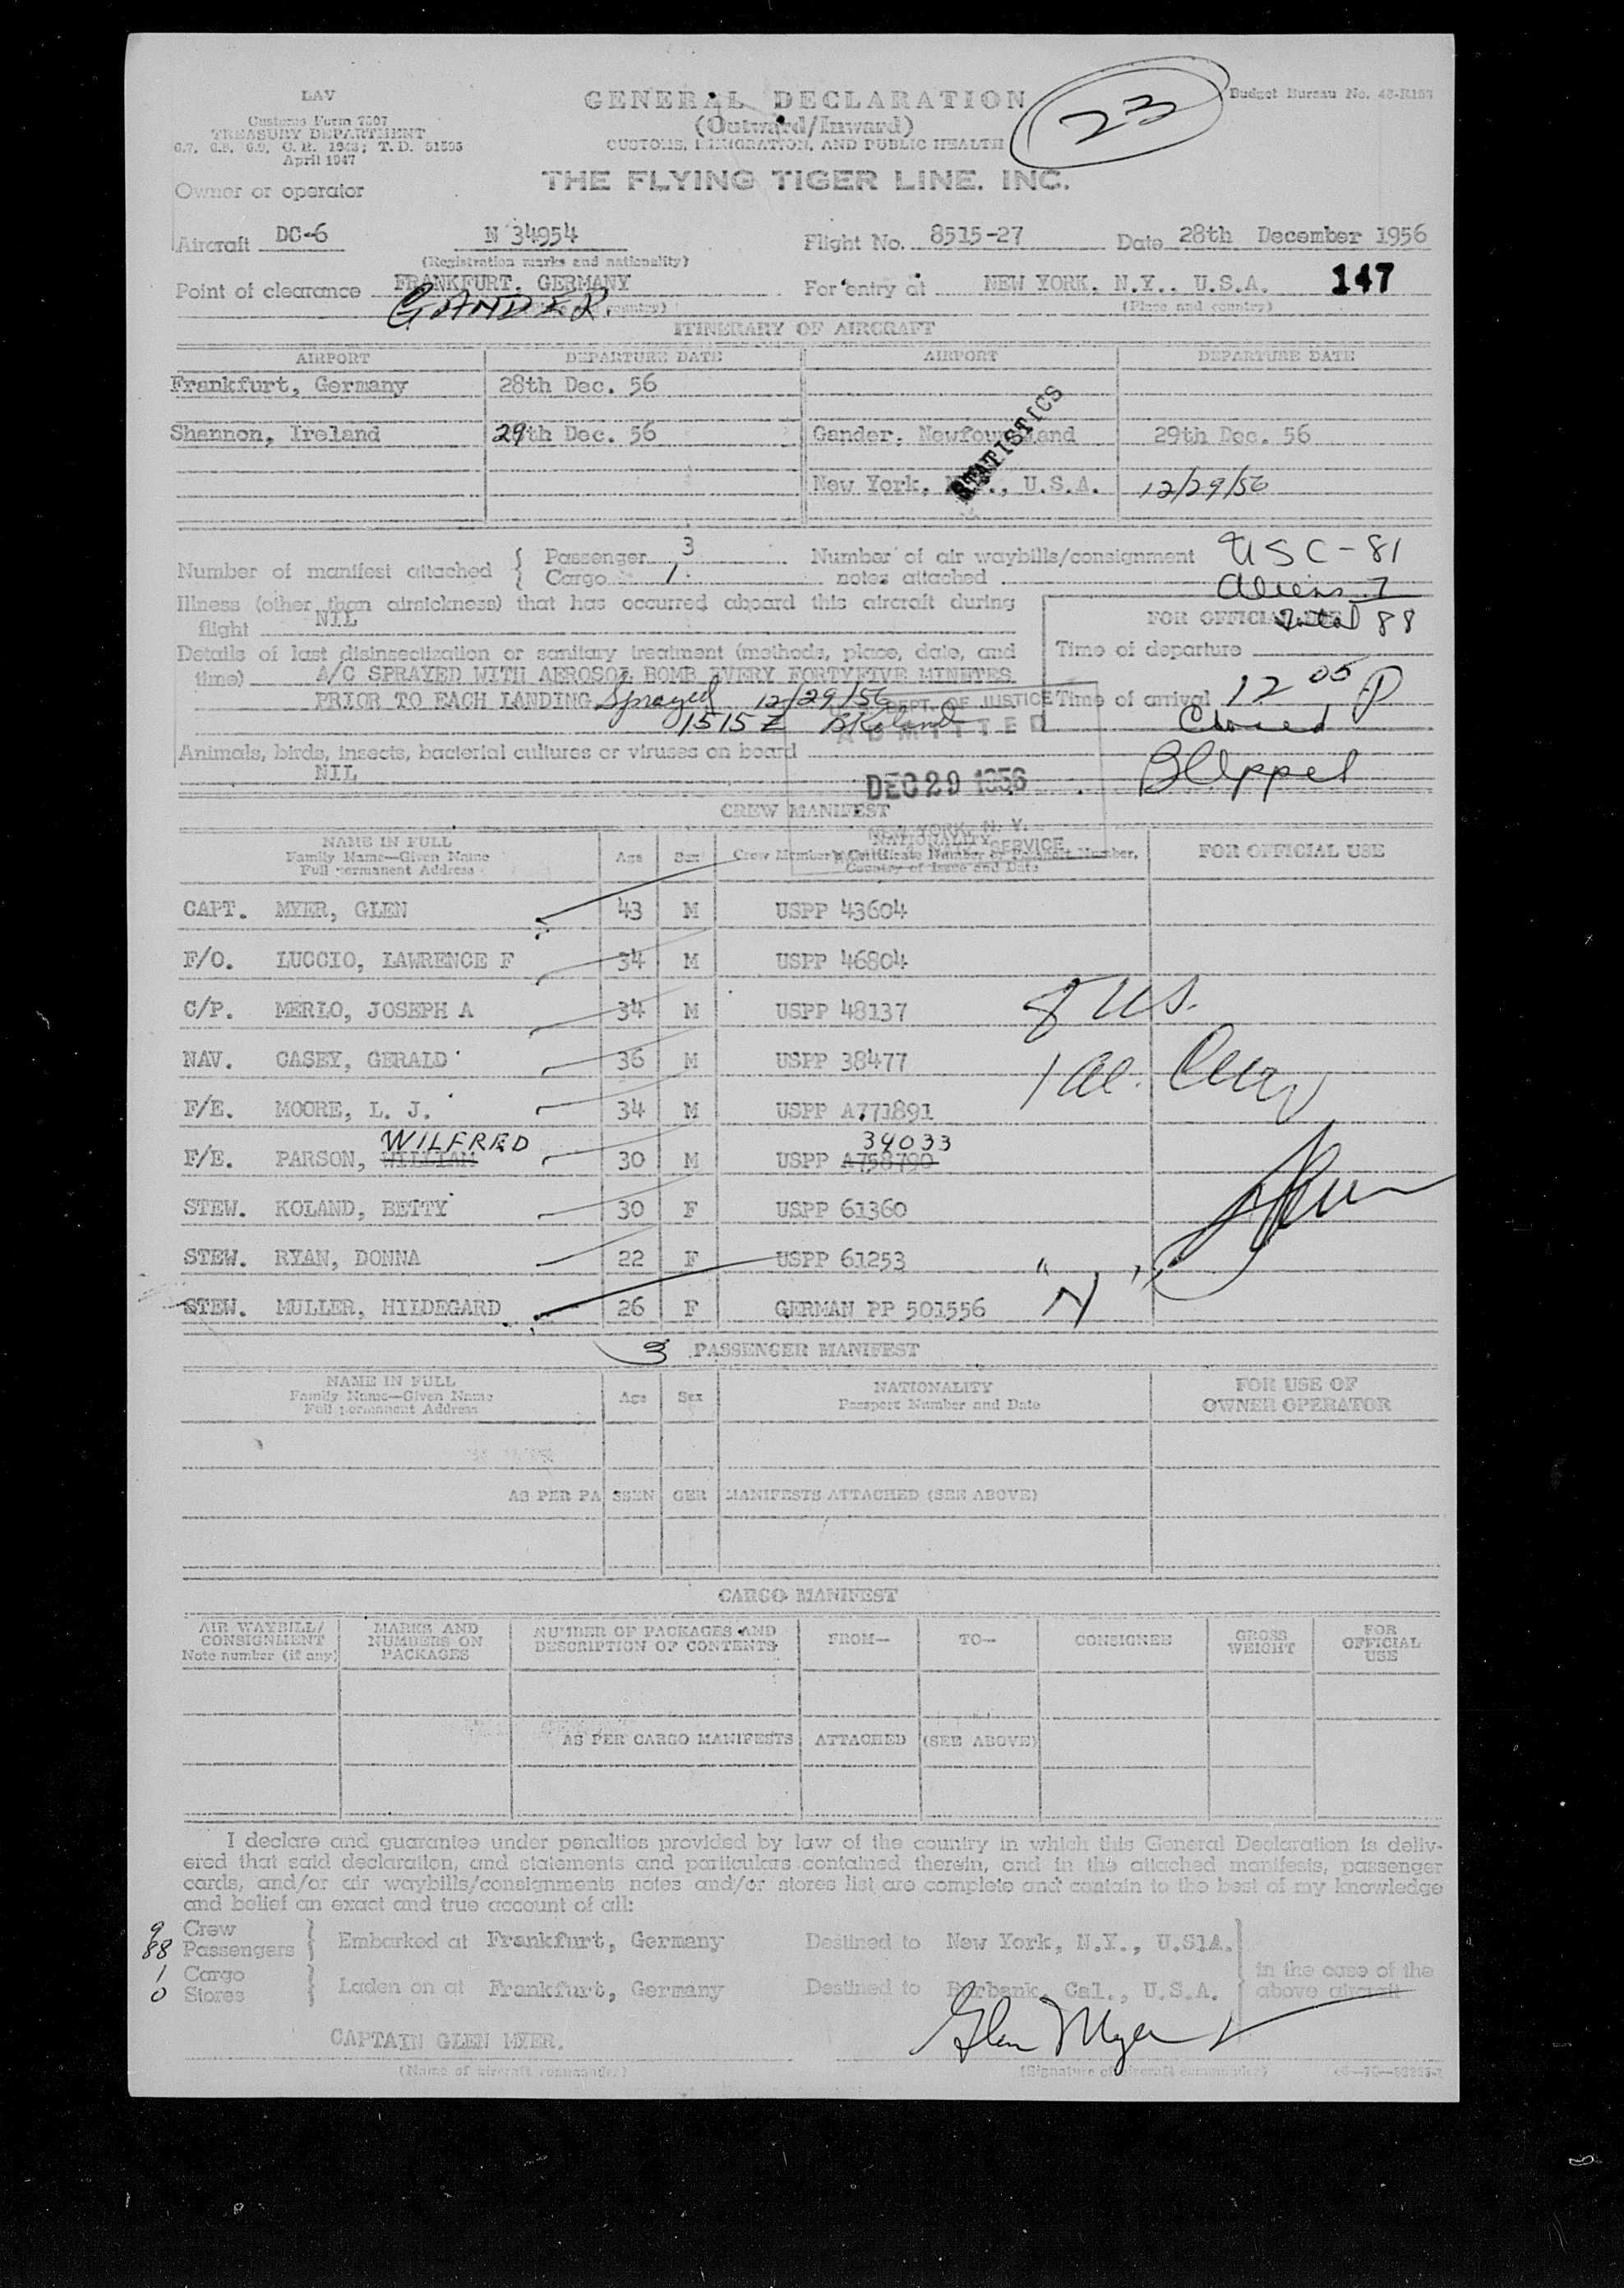 LAV
Customs Form 7507
TREASURY DEPARTMENT
April 1947
GENERAL DECLARATION
(Outward/Inward)
CUSTOMS, IMMIGRATION, AND PUBLIC HEALTH
23
Budget Bureau No.
Owner or operator THE FLYING TIGER LINE. INC.
Aircraft DC-6 N 34954 Flight No. 8515-27 Date 28th December 1956
(Registration marks and nationality)
Point of clearance FRANKFURT, GERMANY For entry at NEW YORK. N.Y.. U.S.A. 147
GANDER. (Place and country)
ITINERARY OF AIRCRAFT
AIRPORT DEPARTURE DATE AIRPORT DEPARTURE DATE
Frankfurt, Germany 28th Dec. 56
STATISTICS
Shannon, Ireland 29th Dec. 56 Gander, Newfoundland 29th Dec. 56
New York, N.Y., U.S.A. 12/29/56
Number of manifest attached { Passenger 3 Number of air waybills/consignment USC-81
Cargo 1 notes attached Aliens 7
Illness (other than airsickness) that has occurred aboard this aircraft during
flight NIL
FOR OFFICIAL USE Total 88
Details of last disinsectization or sanitary treatment (methods, place, date, and Time of departure
time) A/C SPRAYED WITH AEROSOL BOMB EVERY FORTYFIVE MINUTES
PRIOR TO EACH LANDING Sprayed 12/29/56 Time of arrival 12 05 P
1515 Z BKoland
DEPT. OF JUSTICE
ADMITTED
Animals, birds, insects, bacterial cultures or viruses on board
NIL
DEC 29 1956
NEW YORK, N. Y.
SERVICE
CREW MANIFEST
NAME IN FULL
Family Name—Given Name
Full permanent Address
Age Sex
NATIONALITY
Crew Member's Certificate Number or Passport Number,
Country of Issue and Date
FOR OFFICIAL USE
CAPT. MYER, GLEN 43 M USPP 43604
F/O. LUCCIO, LAWRENCE F 34 M USPP 46804
C/P. MERLO, JOSEPH A 34 M USPP 48137 8 US.
NAV. CASEY, GERALD 36 M USPP 38477 1 al.
F/E. MOORE, L. J. 34 M USPP A771891
WILFRED 34033
F/E. PARSON, WILLIAM 30 M USPP A758790
STEW. KOLAND, BETTY 30 F USPP 61360
STEW. RYAN, DONNA 22 F USPP 61253
STEW. MULLER, HILDEGARD 26 F GERMAN PP 501556 "N"
PASSENGER MANIFEST
NAME IN FULL
Family Name—Given Name
Full permanent Address
Age Sex
NATIONALITY
Passport Number and Date
FOR USE OF
OWNER OPERATOR
AS PER PASSENGER MANIFESTS ATTACHED (SEE ABOVE)
CARGO MANIFEST
AIR WAYBILL/
CONSIGNMENT
Note number (if any)
MARKS AND
NUMBERS ON
PACKAGES
NUMBER OF PACKAGES AND
DESCRIPTION OF CONTENTS
FROM— TO— CONSIGNEE
GROSS
WEIGHT
FOR
OFFICIAL
USE
AS PER CARGO MANIFESTS ATTACHED (SEE ABOVE)
I declare and guarantee under penalties provided by law of the country in which this General Declaration is deliv-
ered that said declaration, and statements and particulars contained therein, and in the attached manifests, passenger
cards, and/or air waybills/consignments notes and/or stores list are complete and contain to the best of my knowledge
and belief an exact and true account of all:
9 Crew
88 Passengers } Embarked at Frankfurt, Germany Destined to New York, N.Y., U.S.A.
1 Cargo
0 Stores } Laden on at Frankfurt, Germany Destined to Burbank, Cal., U.S.A.
in the case of the
above aircraft
CAPTAIN GLEN MYER.
Glen Myer
(Name of aircraft commander) (Signature of aircraft commander)